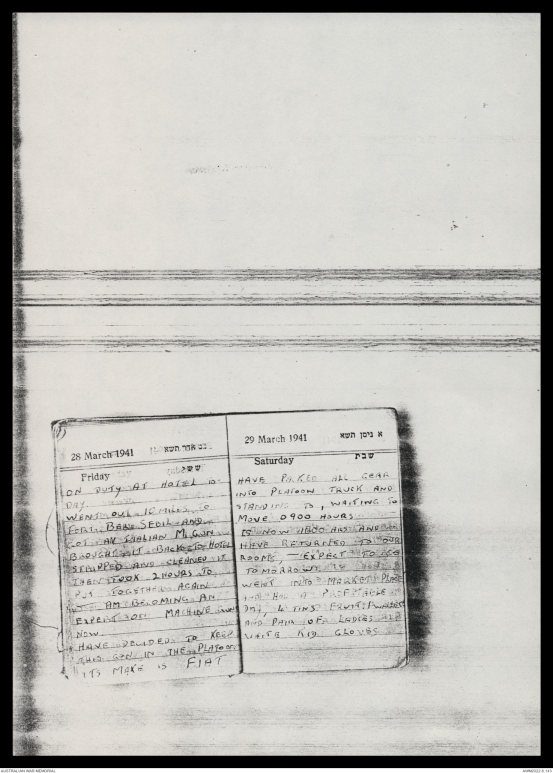 28 March 1941
Friday
ששי
ON DUTY AT HOTEL TO-
DAY.
WENT OUT 10 MILES TO
FORT AND
GOT AN ITALIAN M. GUN
BROUGHT IT BACK TO HOTEL
STRIPPED AND CLEANED IT
THEN TOOK 2 HOURS TO
PUT TOGETHER AGAIN
AM BECOMING AN
EXPERT ON MACHINE GUNS
NOW.
HAVE DECIDED TO KEEP
THIS GUN IN THE PLATOON
ITS MAKE IS FIAT
29 March 1941
א ניסן תשא
Saturday
שבת
HAVE PACKED ALL GEAR
INTO PLATOON TRUCK AND
STANDING TO, WAITING TO
MOVE 0900 HOURS
IS NOW 1800 HRS AND WE
HAVE RETURNED TO OUR
ROOMS, EXPECT TO GO
TOMORROW.
WENT INTO MARKET PLACE
HAD A PROFITABLE
DAY, 4 TINS FRUIT,
AND PAIR OF LADIES
WHITE KID GLOVES
AUSTRALIAN WAR MEMORIAL